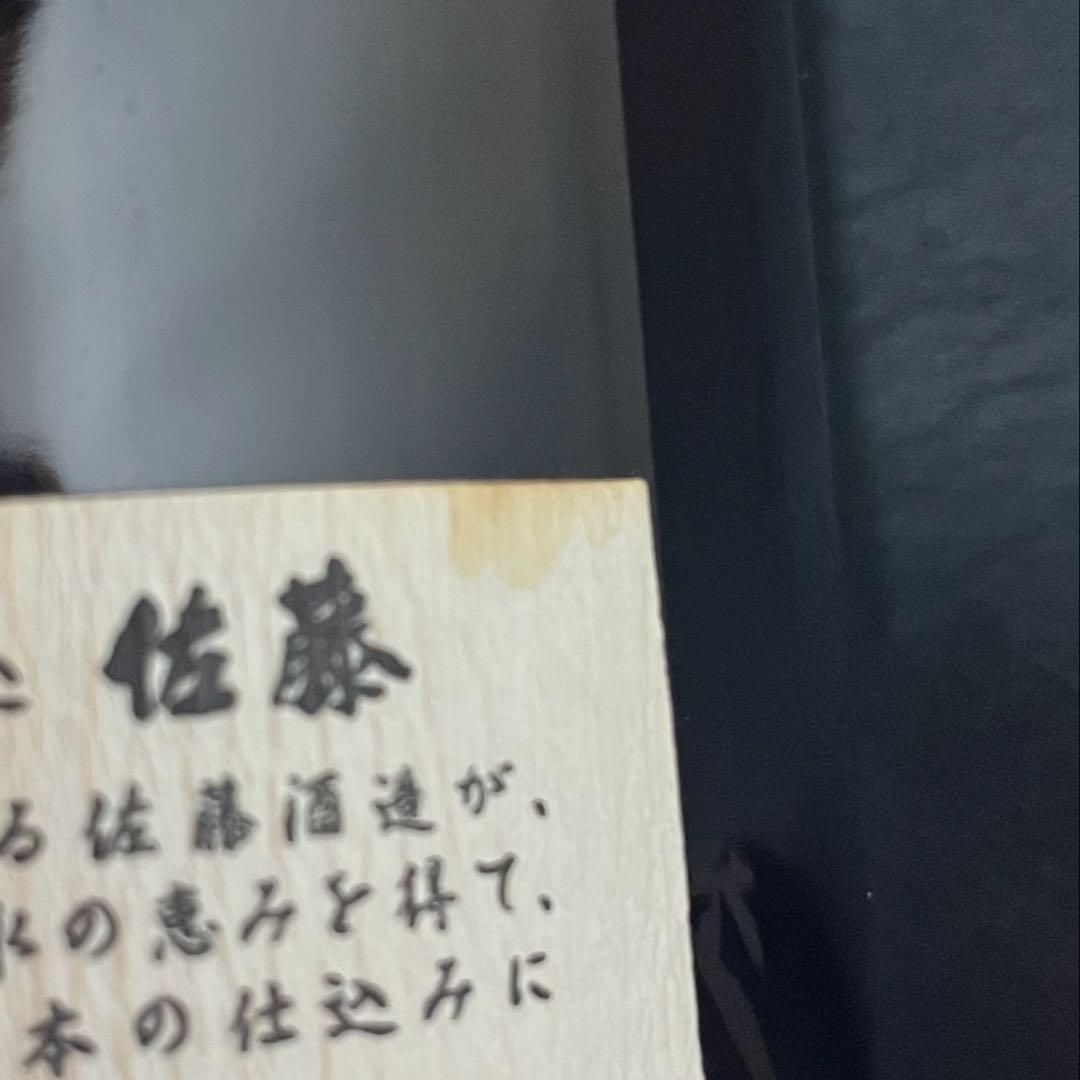 佐藤
る佐藤酒造が、
水の恵みを得て、
本の仕込みに